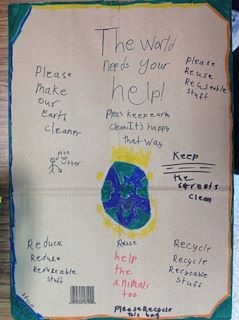 The World
Needs Your
help!
Please
make
our
Earth
cleaner
Please
Reuse
Reuseable
stuff
Pleas keep earth
clean.It's happy
that way
Pick
up
litter
Keep
the
streets
clean
Reduce
Reduse
Reruseable
stuff
Reuse
help
the
animals
too.
Recycle
Recycle
Recycable
stuff
Please Recycle
this bag